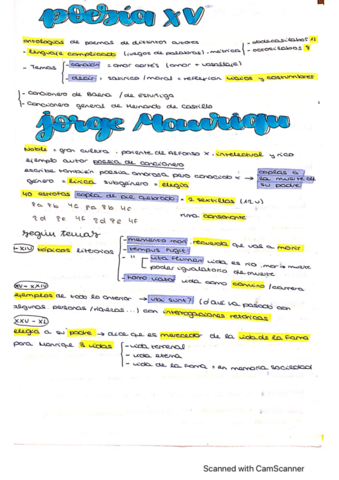 poesía XV
antologías de poemas de distintos autores
- lenguaje complicado (juegos de palabras). métrica
- dodecasílabos 12
- octosílabos 8
- Temas
- canción = amor cortés (amor = vasallaje)
- decir: satírica / moral = reflexión vicios y costumbres
- cancionero de Baena / de estúñiga
- cancionero general de Hernando de Castillo
Jorge Manrique
Noble = gran cultura. pariente de Alfonso X. intelectual y rico
ejemplo autor poesía de cancionero
escribe también poesía amorosa pero conocido x → coplas a la muerte de su padre
género = lírica subgénero = elegía
40 estrofas copla de pie quebrado = 2 sextillas (12 v)
8a 8b 4c 8a 8b 4c
8d 8e 4f 8d 8e 4f
rima consonante
según temas
I-XIV tópicos literarios
- memento mori, recuerda que vas a morir
- tempus fugit:
- " vita flumen: vida es río, mar es muerte
poder igualatorio de muerte
- homo viator vida como camino / carrera
XV - XXIV
ejemplos de todo lo anterior → ubi sunt? (d qué ha pasado con
algunas personas / riquezas...) con interrogaciones retóricas
XXV - XL
elegía a su padre → dice que es merecedor de la vida de la fama
para Manrique 3 vidas
- vida terrenal
- vida eterna
- vida de la fama = en memoria sociedad
1
Scanned with CamScanner